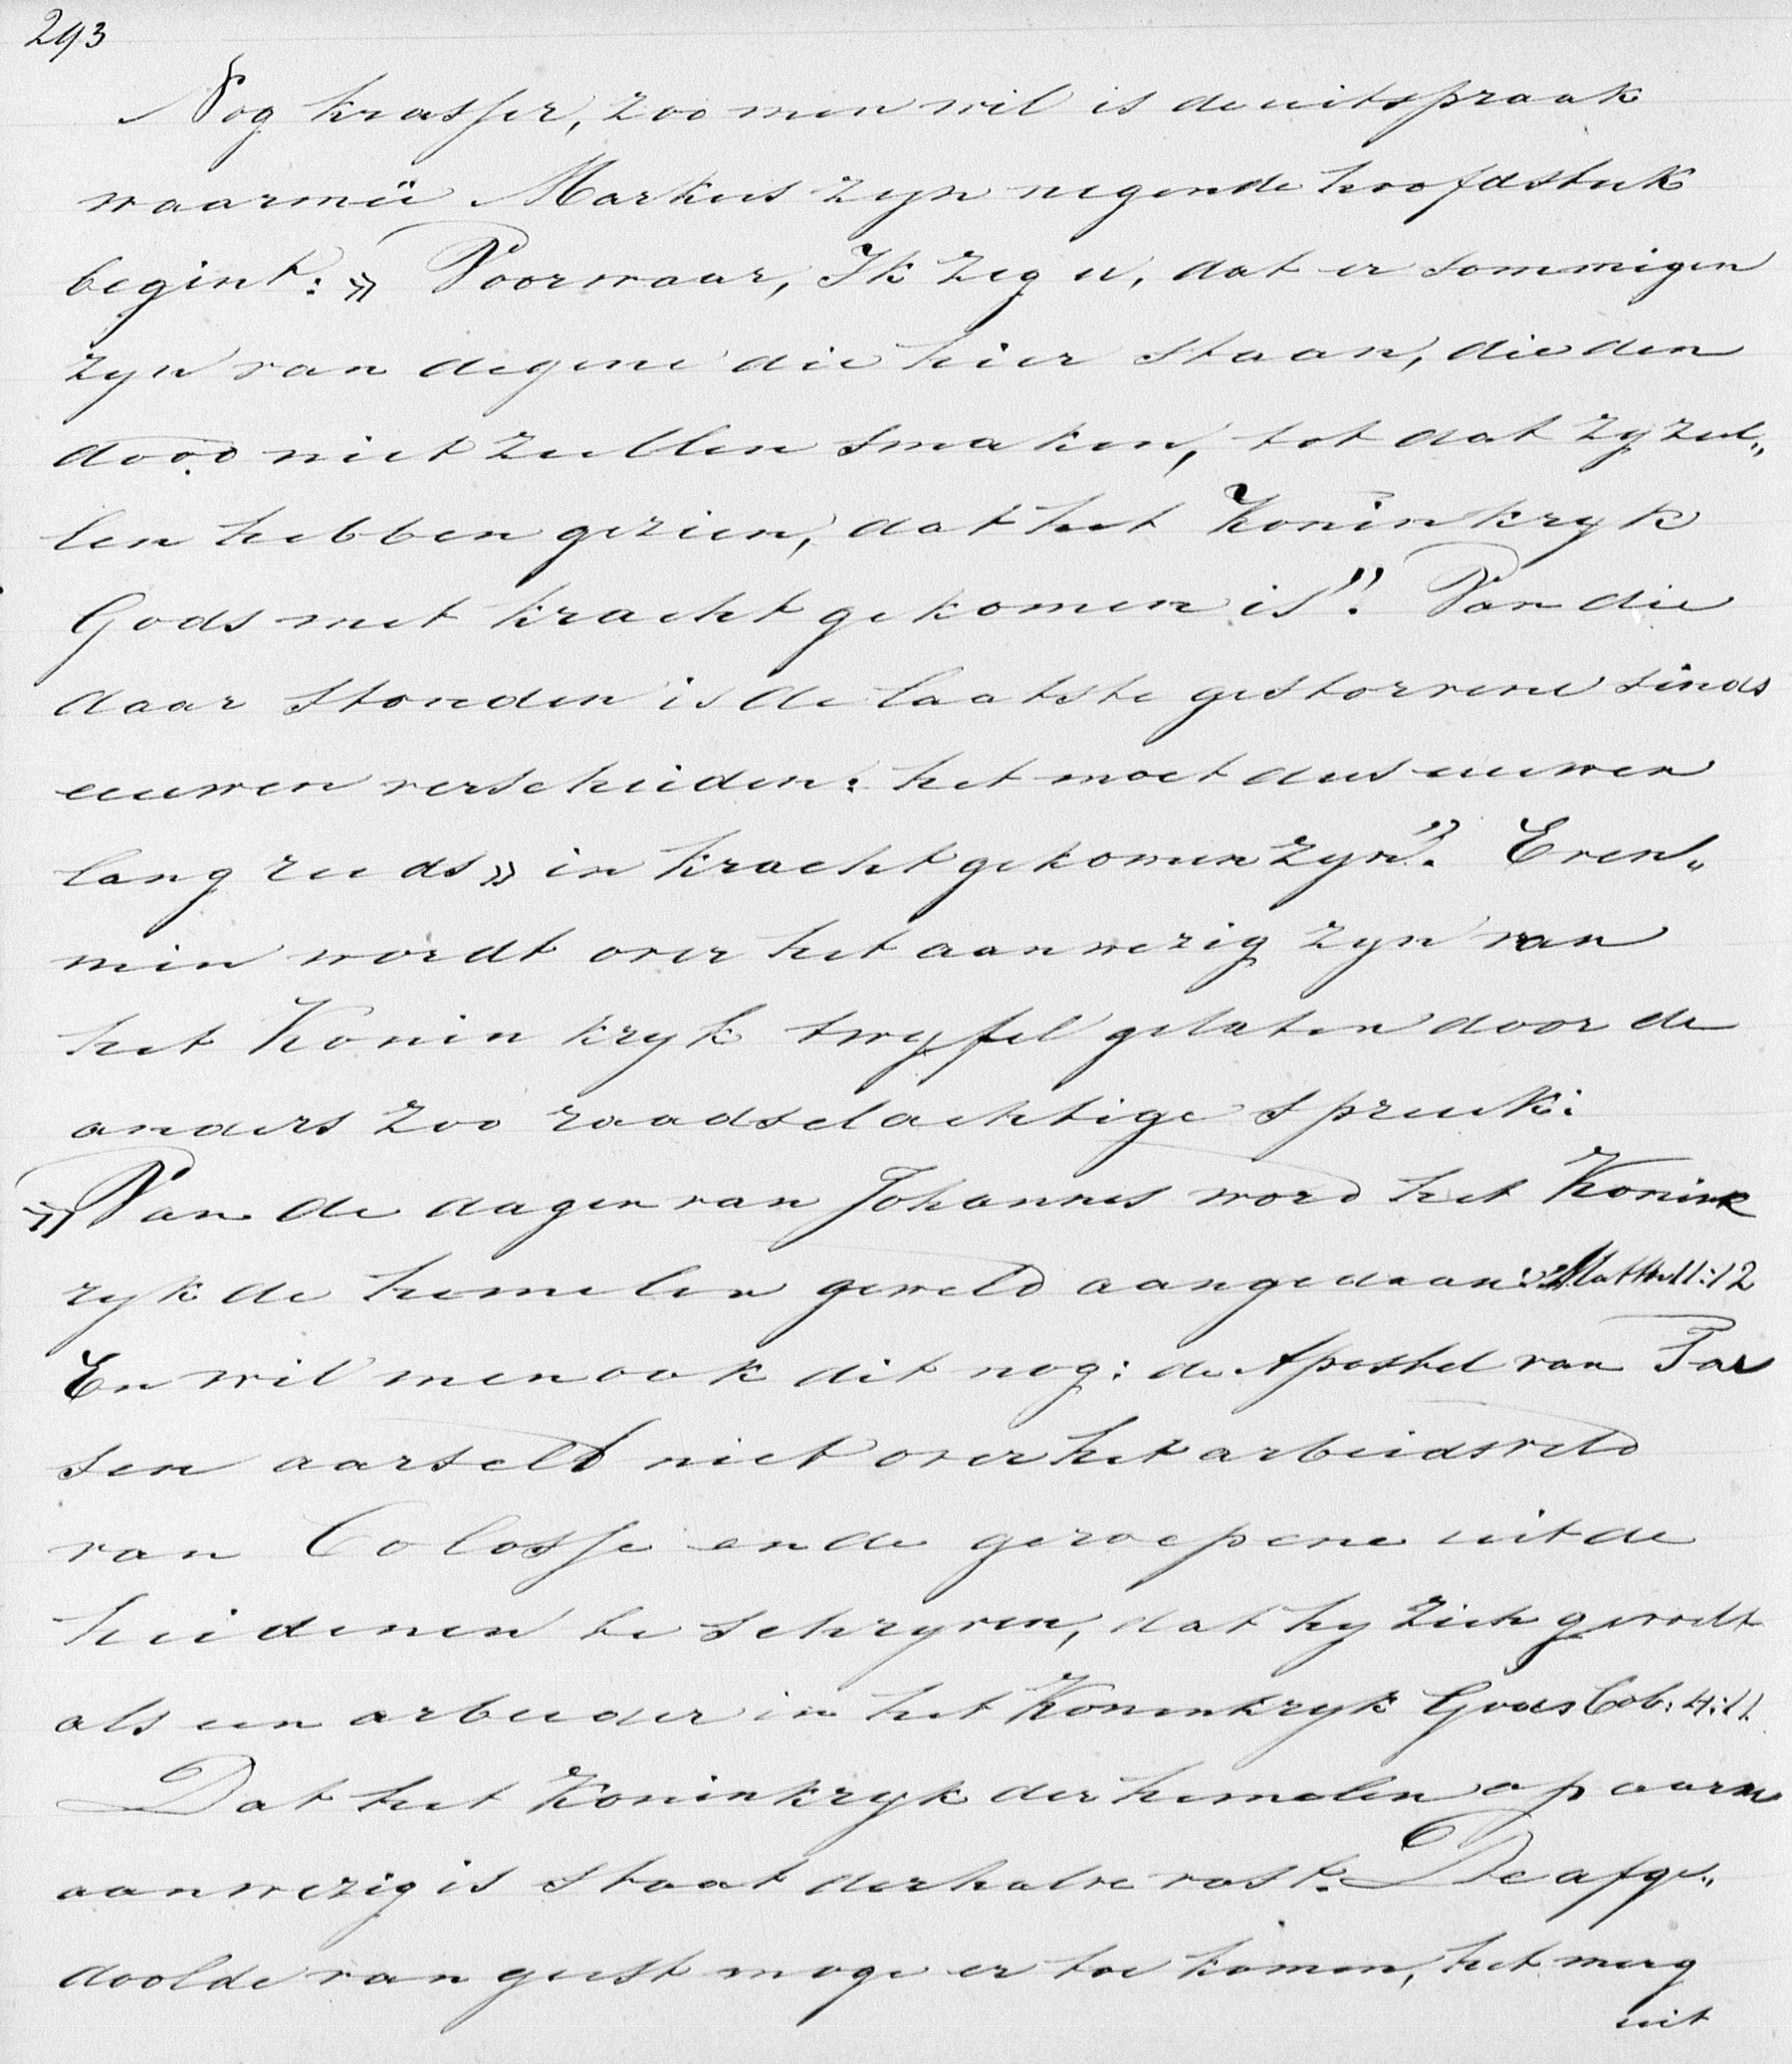 293
Nog krasser, zoo men wil is de uitspraak
waarmeê Markus zyn negende hoofdstuk
begint: „Voorwaar, Ik zeg u, dat er sommigen
zyn van degene die hier staan, die den
dood niet zullen smaken, tot dat zy zul„
len hebben gezien, dat het Koninkryk
Gods met kracht gekomen is”. Van die
daar stonden is de laatste gestorvene sinds
eeuwen verscheiden: het moet dus eeuwen
lang reeds „in kracht gekomen zyn”. Even„
min wordt over het aanwezig zyn van
het Koninkryk twyfel gelaten door de
anders zoo raadselachtige spreuk:
„Van de dagen van Johannes word het Konink
ryk de hemelen geweld aangedaan: Matth 11:12
En wil men ook dit nog: de Apostel van Tar
sen aarseld niet over het arbeidsveld
van Colosse en de geroepene uit de
heidenen te schryven, dat hy zich gevoelt
als een arbeider in het Koninkryk Gods Col: 4:11.
Dat het Koninkryk der hemelen op aarde
aanwezig is staat derhalve vast. De afge„
doolde van geest moge er toe komen, het merg
uit